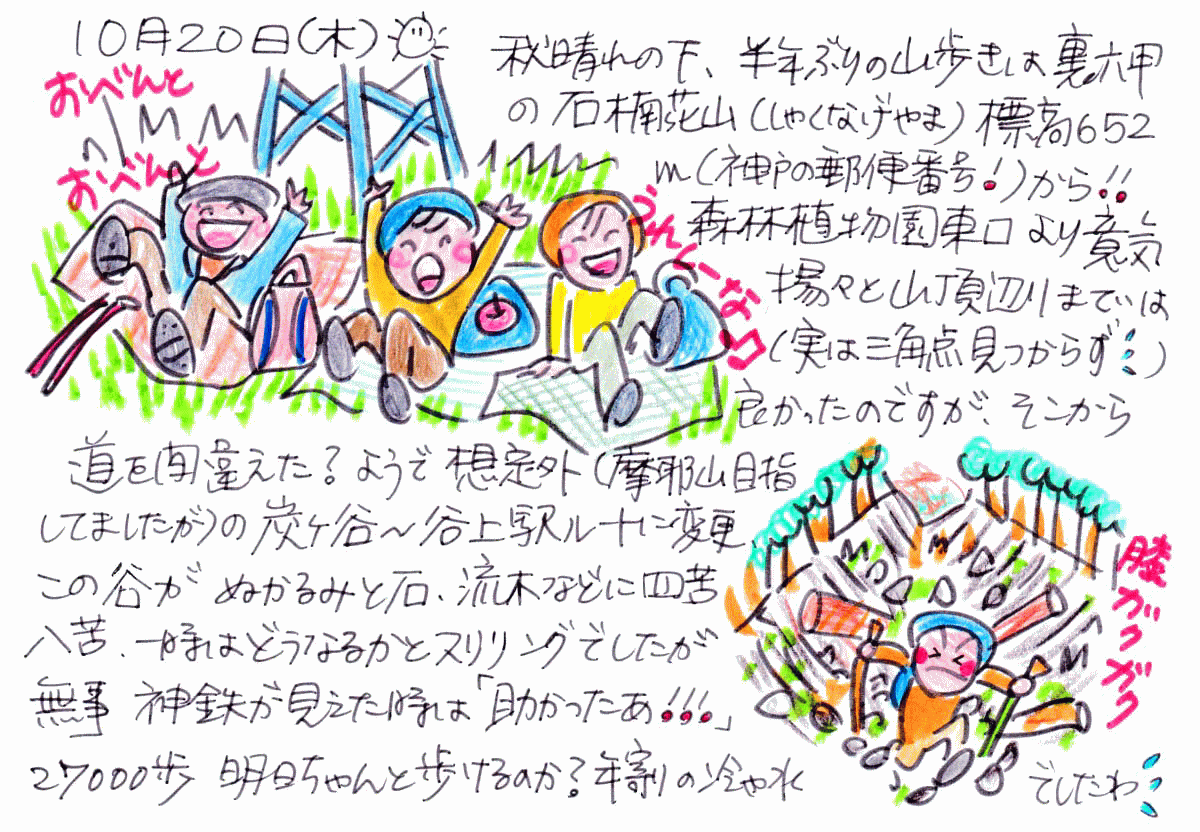 10月20日(木)
おべんと
おべんと
うれしーな
秋晴れの下、半年ぶりの山歩きは裏六甲
の石楠花山(しゃくなげやま)標高652
m(神戸の郵便番号!)から!!
森林植物園東口より意気
揚々と山頂辺りまでは
(実は三角点見つからず)
良かったのですが、そこから
道を間違えた?ようで想定外(摩耶山目指
してましたが)の炭ヶ谷〜谷上駅ルートに変更、
この谷がぬかるみと石、流木などに四苦
八苦、一時はどうなるかとスリリングでしたが
無事 神鉄が見えた時は「助かったあ!!!」
27000歩 明日ちゃんと歩けるのか?年寄りの冷や水
でしたわ
膝がクがク